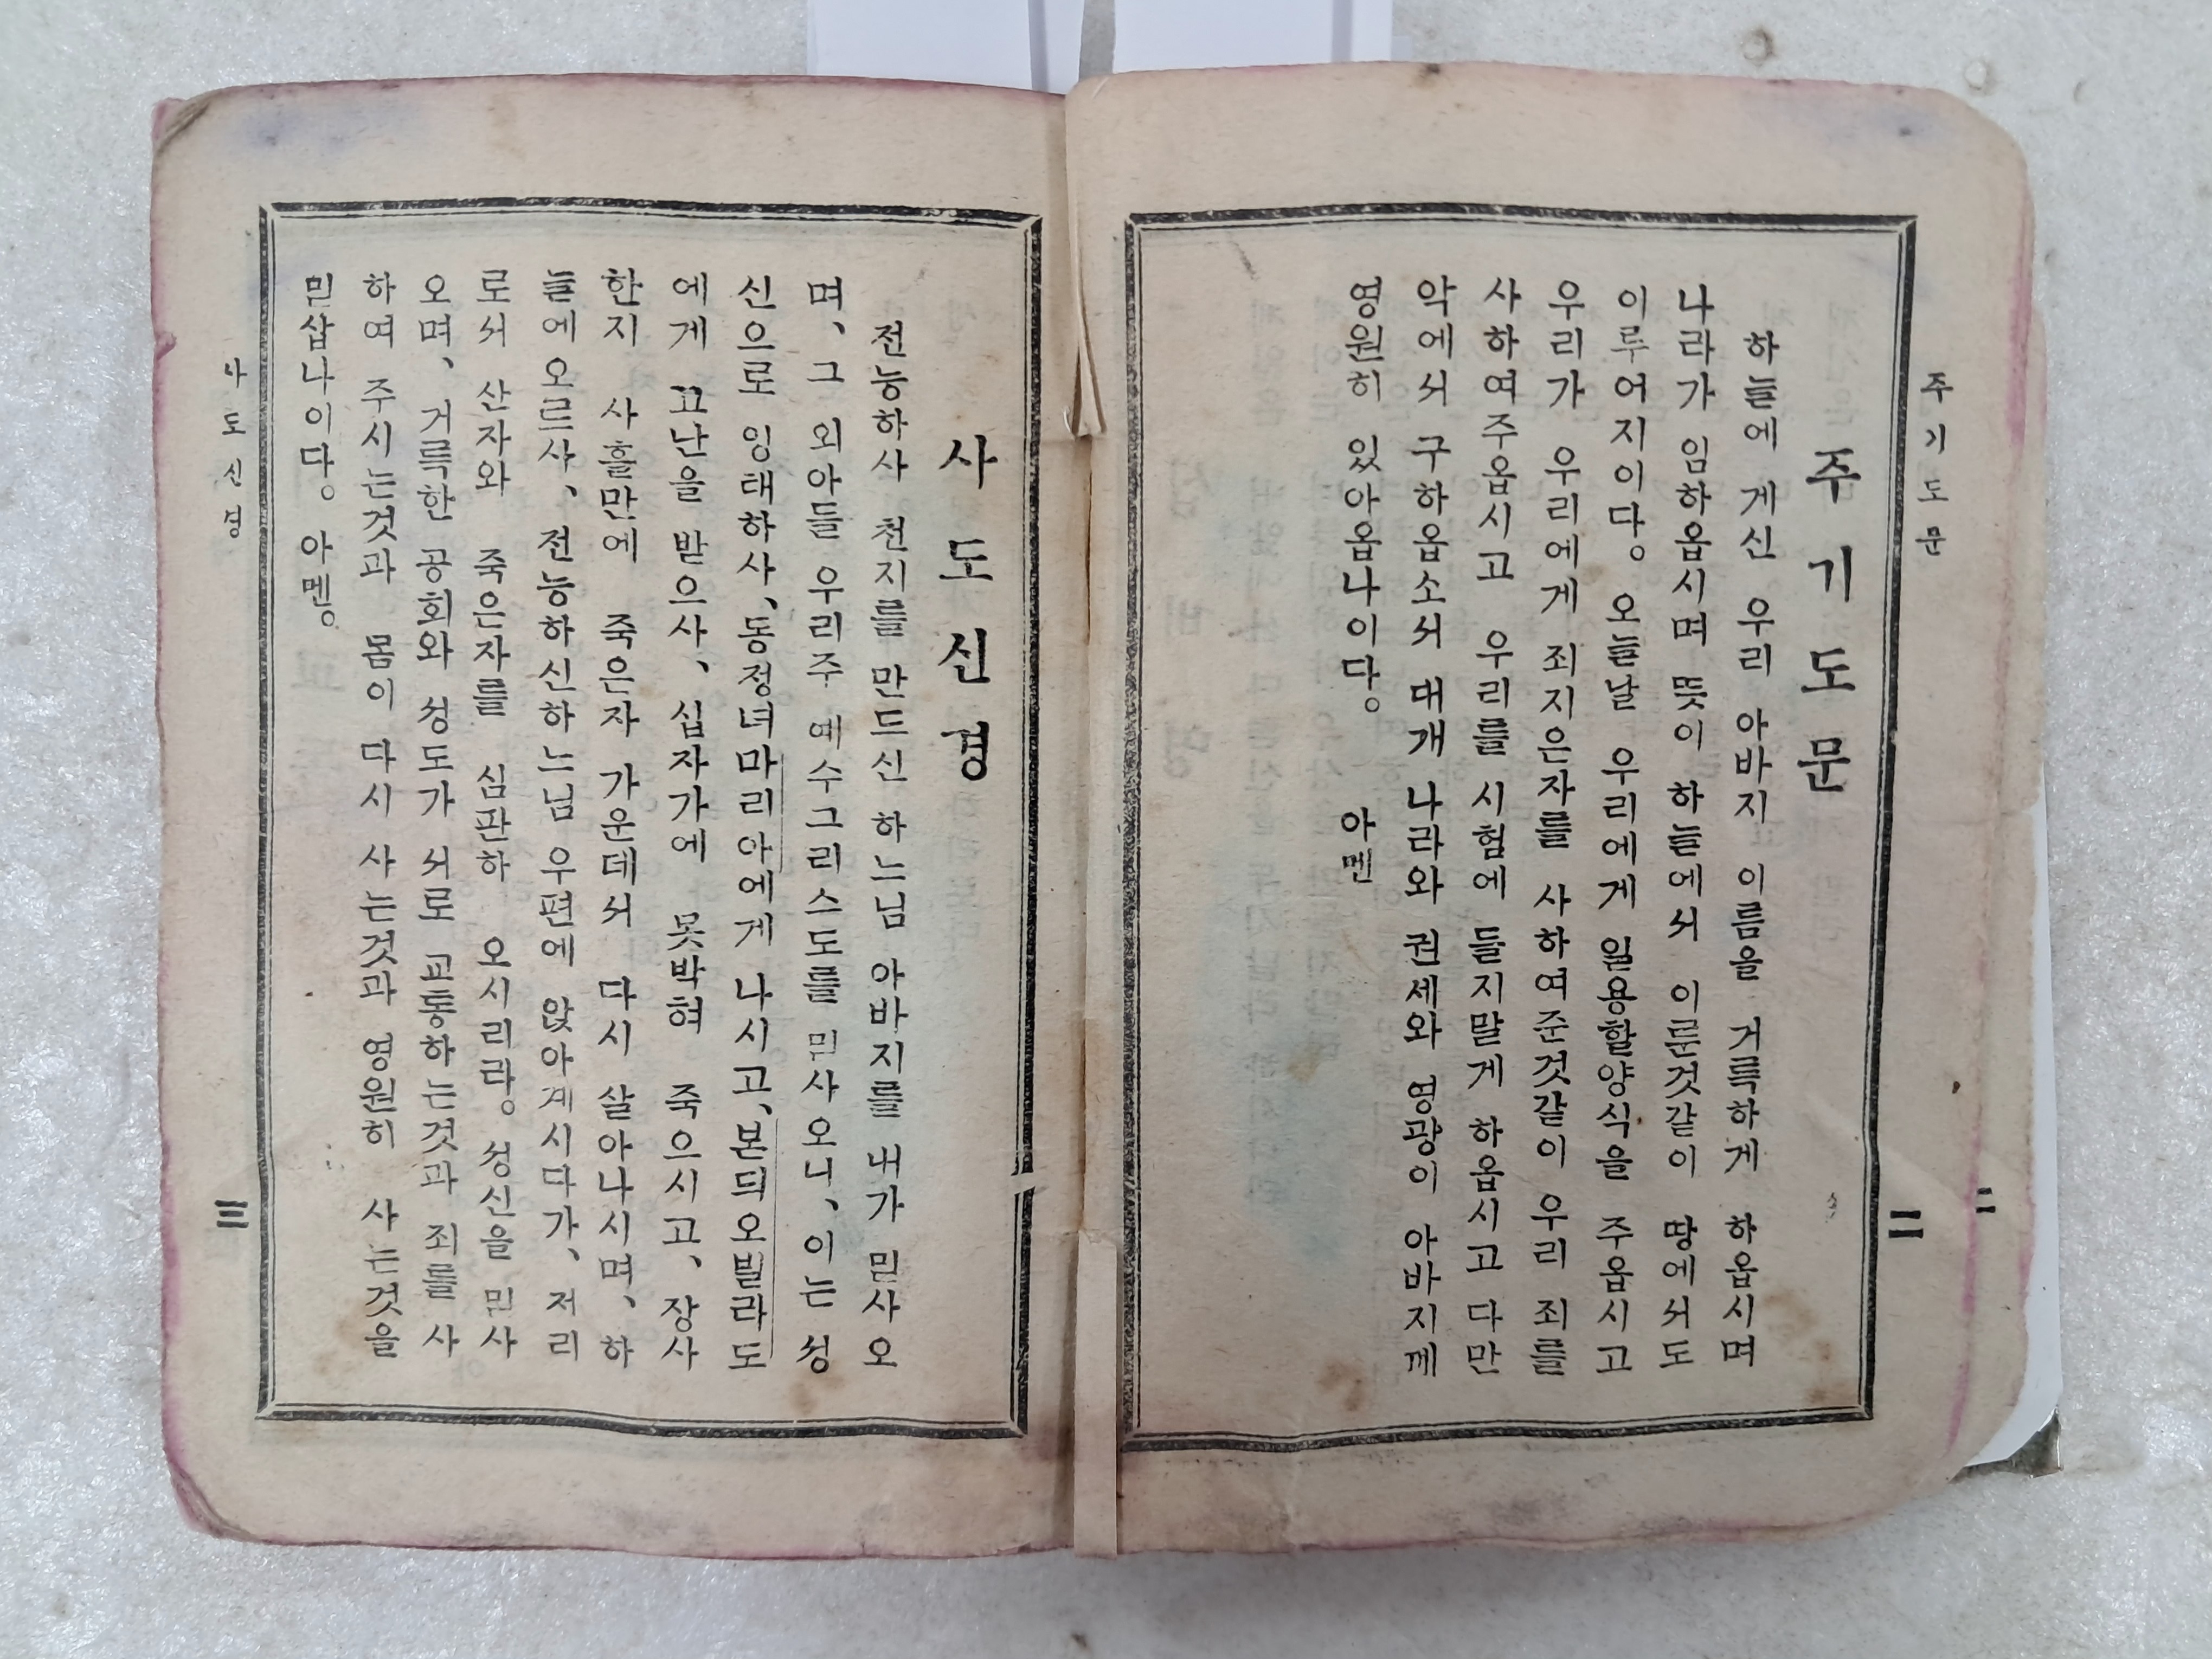 주기도문
주기도문
하늘에 게신 우리 아바지 이름을 거륵하게 하옵시며
나라가 임하옵시며 뜻이 하늘에서 이룬것같이 땅에서도
이루어지이다。오늘날 우리에게 일용할양식을 주옵시고
우리가 우리에게 죄지은자를 사하여준것같이 우리 죄를
사하여주옵시고 우리를 시험에 들지말게 하옵시고 다만
악에서 구하옵소서 대개 나라와 권세와 영광이 아바지께
영원히 있아옵나이다。 아멘
二
二
사도신경
전능하사 천지를 만드신 하느님 아바지를 내가 믿사오
며、그 외아들 우리주 예수그리스도를 믿사오니、이는 성
신으로 잉태하사、동정녀마리아에게 나시고、본듸오빌라도
에게 고난을 받으사、십자가에 못박혀 죽으시고、장사
한지 사흘만에 죽은자 가운데서 다시 살아나시며、하
늘에 오르사、전능하신하느님 우편에 앉아계시다가、저리
로서 산자와 죽은자를 심판하 오시리라。성신을 믿사
오며、거륵한 공회와 성도가 서로 교통하는것과 죄를 사
하여 주시는것과 몸이 다시 사는것과 영원히 사는것을
믿삽나이다。아멘。
사도신경
三